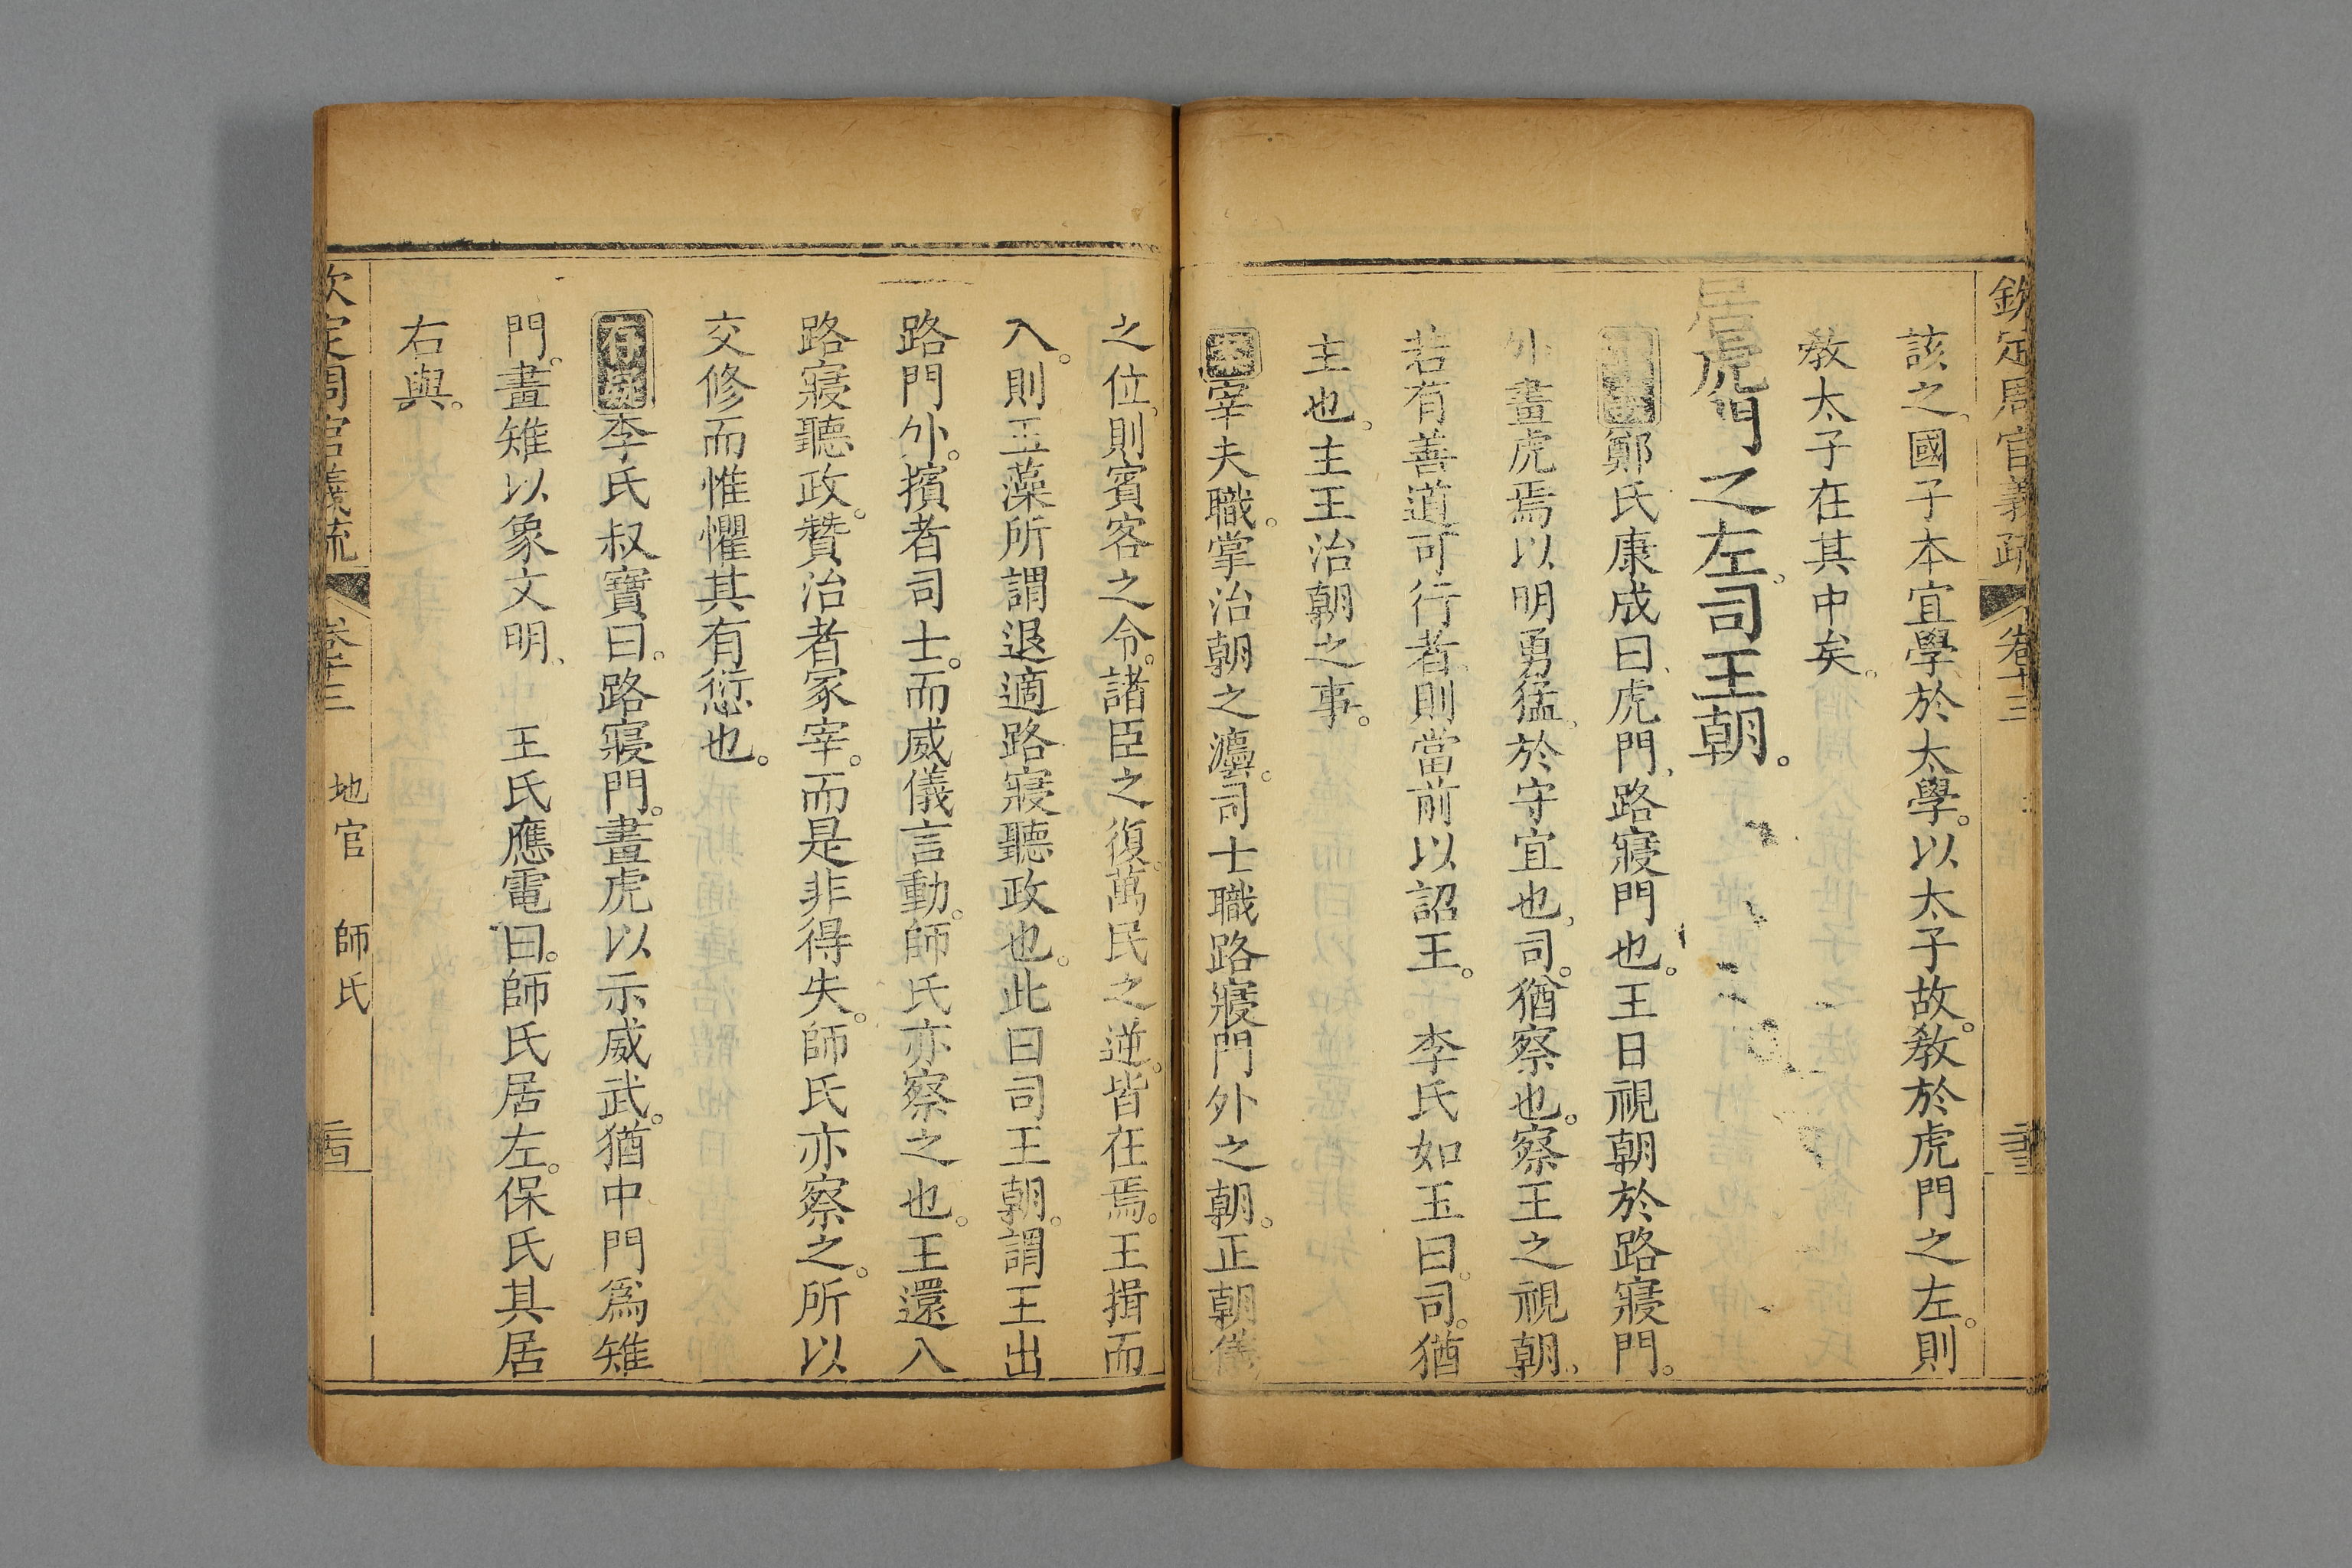 欽定周官義疏 卷十三
該之國子本宜學於太學以太子故教於虎門之左則
教太子在其中矣
居虎門之左司王朝
鄭氏康成曰虎門路寢門也王日視朝於路寢門
外畫虎焉以明勇猛於守宜也司猶察也察王之視朝
若有善道可行者則當前以詔王 李氏如玉曰司猶
主也主王治朝之事
案宰夫職掌治朝之灋司士職路寢門外之朝正朝儀
之位則賓客之令諸臣之復萬民之逆皆在焉王揖而
入則玉藻所謂退適路寢聽政也此曰司王朝謂王出
路門外擯者司士而威儀言動師氏亦察之也王還入
路寢聽政贊治者冢宰而是非得失師氏亦察之所以
交修而惟懼其有愆也
存疑李氏叔寶曰路寢門畫虎以示威武猶中門爲雉
門畫雉以象文明 王氏應電曰師氏居左保氏其居
右與
欽定周官義疏 卷十三 地官 師氏